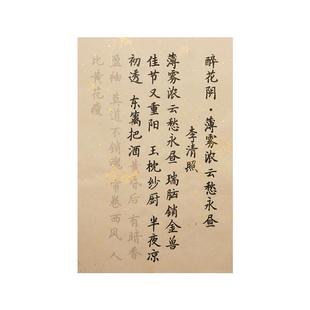 醉花阴·薄雾浓云愁永昼
李清照
薄雾浓云愁永昼 瑞脑销金兽
佳节又重阳 玉枕纱厨 半夜凉
初透 东篱把酒黄昏后 有暗香
盈袖 莫道不销魂 帘卷西风 人
比黄花瘦